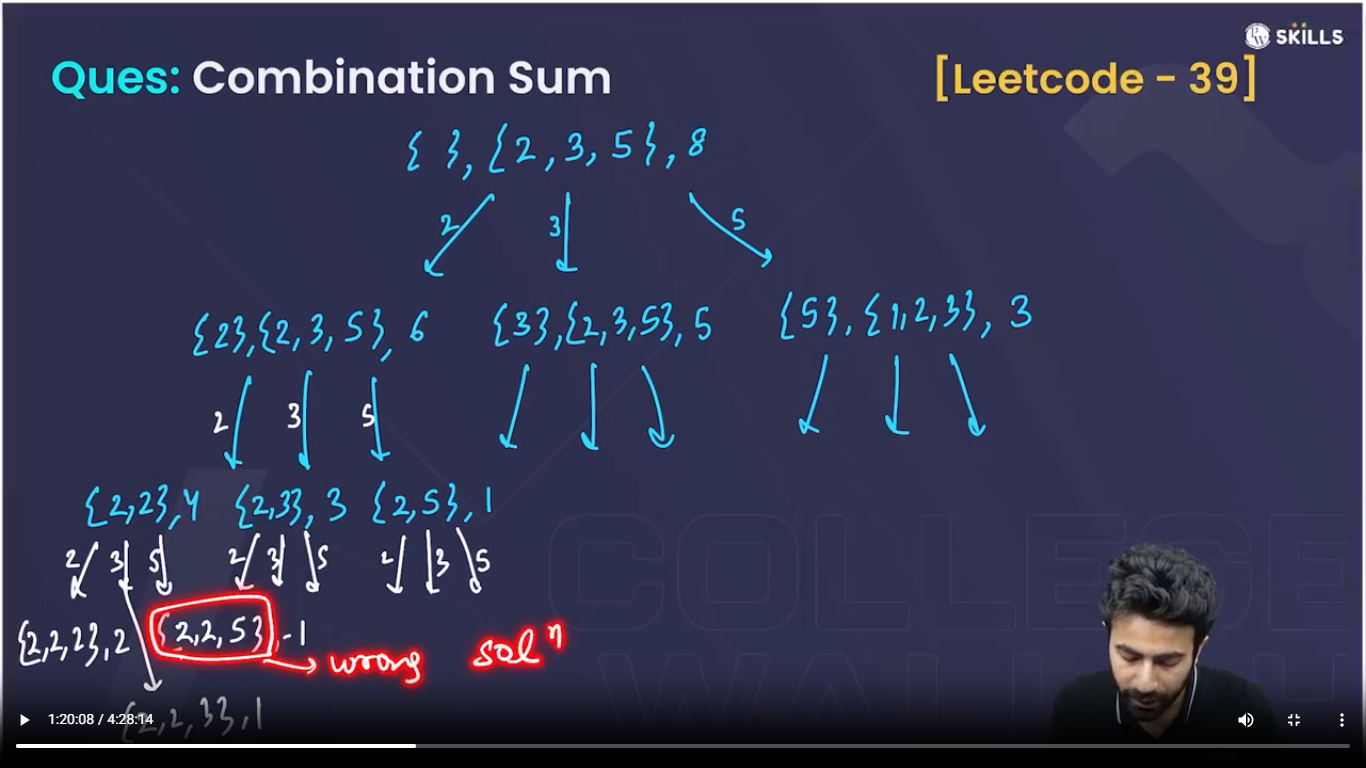 SKILLS
Ques: Combination Sum
[Leetcode - 39]
{ }, {2, 3, 5}, 8
2 3 5
{2},{2, 3, 5}, 6 {3},{2,3,5},5 {5}, {1,2,3}, 3
2 3 5
{2,2},4 {2,3}, 3 {2,5},1
2 3 5 2 3 5 2 3 5
{2,2,2},2 {2,2,5},-1
wrong solⁿ
{2,2,3},1
1:20:08 / 4:28:14
COLLEGE
WALLAH